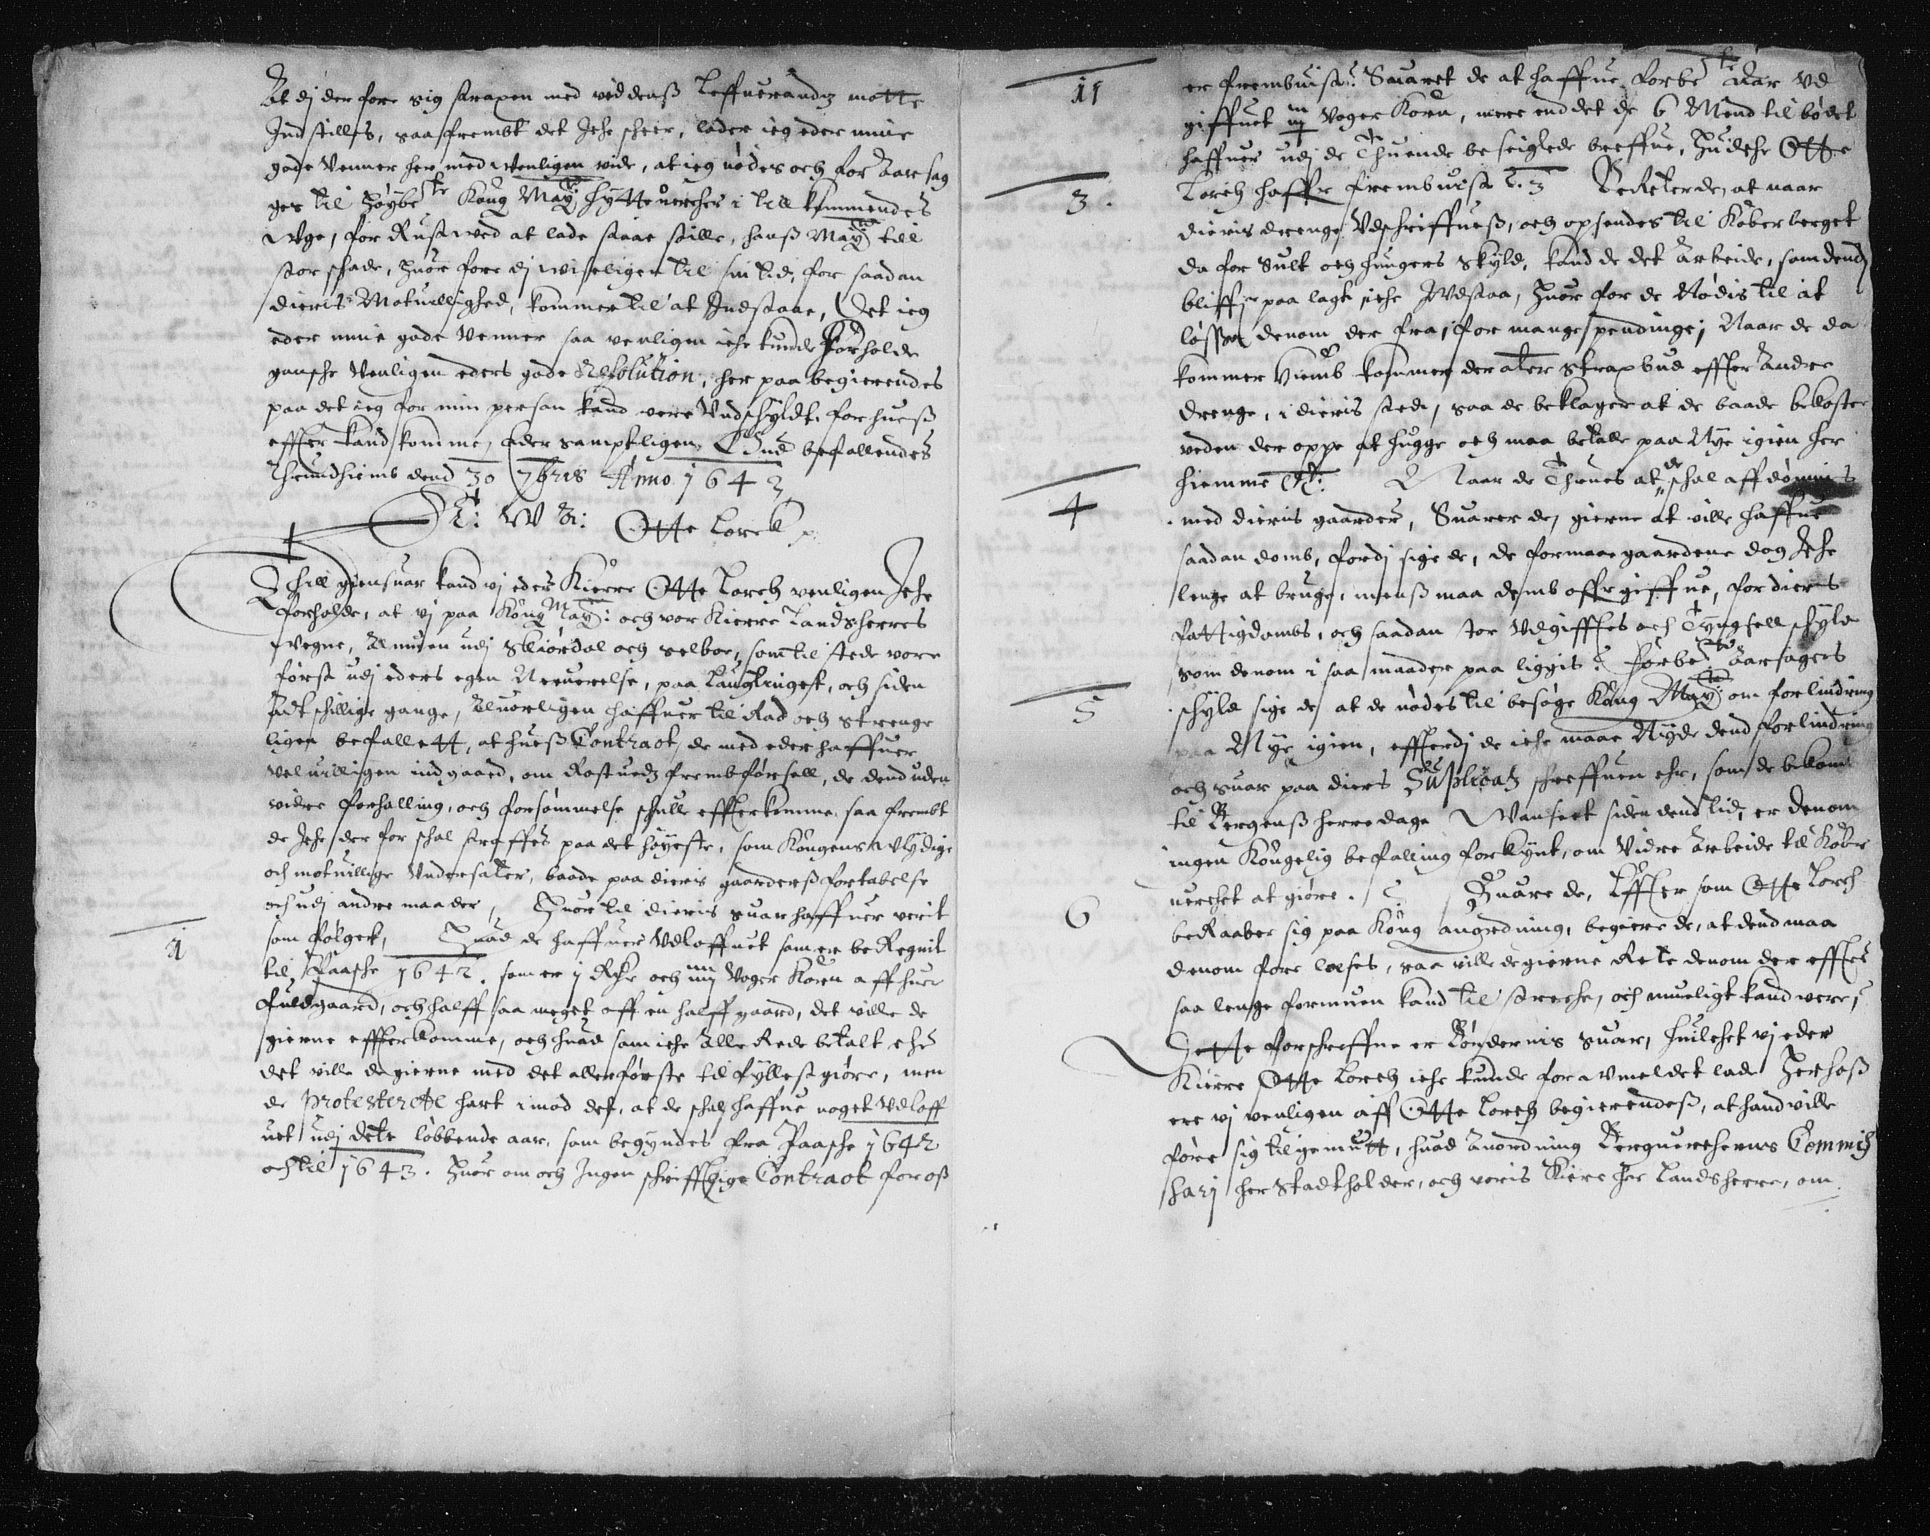 At dj der fore sig straxen med veddenß Leffuerandz motte
Indstilles, saa frembt det Iche scheer, lader ieg eder mine
gode Venner her med Venligen vide, at ieg nødes och for Aarsag
ges til Høybe^te Kong May^tz hytteuercher i till kommendes
Vge, for Rust wed at lade staae stille, hanß May^tt till
stor schade, huor fore dj wiseligen til sin tid, for saadan
dieris Motuillighed, kommer til at Indstaae, Det ieg
eder mine gode Venner saa venligen iche kunde Forholde
gansche Venligen eders gode Resolution, her paa begierendes
paa det ieg for min person kand vere Vndschyldt, for hueß
effter kand komme, Eder samptligen Gud befallendes
Thrundhiemb dend 30 7bris Anno 1642
E: W V:
Otte Lorck
Thill giensuar kand vj eder Kierre Otte Lorch venligen Iche
forholde, at vj paa Kong May: och vor Kierre Landsherres
Vegne, Almuen udj Stiørdal och Selboe, som til stede vore
først udj eders egen Neruerelse, paa Laugtinget, och siden
Adtschillige gange, Aluorligen haffuer tilRad och strenge
ligen befallett, at hueß Contract, de med eder haffuer
veluilligen indgaaed, om Rostuedz frembførsell, de dend uden
vidre forhalling, och forsømmelse schulle effterkomme, saa frembt
de Iche der for schal straffes paa det høyeste, som Kongens Vlydige
och motuillige Vndersatter, baade paa dieris gaarders fortabelse
och udj andre maader, Huor til dieris suar haffuer verit
som følger,
1 Huad de haffuer Vdloffuet som er beRegnit
til Paasche 1642. som er j Rdr och iiij Voger Korn aff huer
fuldgaard, och halff saa meget aff en halff gaard, det ville de
gierne effterkomme, och huad som iche Alle Rede betalt ehr
det ville de gierne med det allerførste til fyllest giøre, men
de protesterete hart imod det, at de schal haffue noget Vdloff
uet udj dete løbbende aar, som begyndes fra Paasche 1642
och til 1643. Huor om och Ingen schrifftlige Contract for oß
11 er frembuist. Suaret de at haffue forbe^te Aar Vd
giffuet iij Voger Korn, mere end det de 6 Mend til bødet
haffuer udj de Thuende beseiglede breffue, Huilche Otte
Lorch haffr frembuist
3. BeRetter de, at naar
dieris drenge Vdschriffueß, och opsendes til Kåberberget
da for Sult och hungers skyld, kand de det Arbeide, som dend
bliffr paa lagt iche Vdstaa, Huor for de Nødis til at
løsse denom der fra, for mange spendinge, Naar de da
kommer hiemb kommer der ater strax bud effter Andre
drenge, i dieris sted, saa de beklager at de baade bekoster
veden der oppe at hugge och maa betalle paa Nye igien her
hiemme
4 Naar de Truees at de schal aff dømmis
med dieris gaarder, Suarer de, gierne at ville haffue
saadan domb, fordj sige de, de formaae gaardene dog Iche
lenge at bruge, menß maa demb offr giffue, for dieris
fattigdombs, och saadan stor Vdgifftes och Tyngsell schyld
som denom i saa maader paa liggis
5 Forbe^te Aarsagers
schyld sige de at de nødes til besøge Kong May^tt om forlindring
paa Nye igien, effterdj de iche maae Nyde dend forlindring
och suar paa diers Suplicatz schreffuen ehr, som de bekom
til Bergenß herredage Vanseet siden dend tid, er denom
ingen Kongelig befaling forkynt, om Vidre Arbeide til Kåber
uerchet at giøre.
6 Suare de, Effter som Otte Lorch
beRaaber sig paa Kong anordning, begierede, at dend maa
denom fore leses, saa ville de gierne Rete denom der effter
saa lenge formuen kand til streche, och mueligt kand vere,
Dette forschreffne er Bøndernis suar, Huilchet vj eder
Kierre Otte Lorch iche kunde for Vmeldet lade Herhoß
ere vj venligen aff Otte Lorch begierendeß, at hand ville
føre sig til gemutt, huad Anordning Berguerchernes Commis
sarj her Stadtholder, och voris Kiere her Landsherre, om